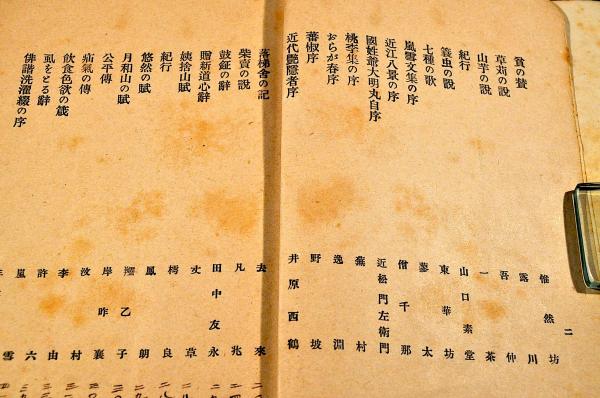 二
貧の賛 惟然坊
草苅の說 露川
山芋の說 吾仲
紀行 一茶
簑虫の說 山口素堂
七種の歌 東華坊
嵐雪文集の序 蓼太
近江八景の序 僧千那
國姓爺大明丸自序 近松門左衞門
桃李集の序 蕪村
おらが春序 逸淵
蕃椒序 野坡
近代艶隱者序 井原西鶴
落柿舍の記 去來
柴賣の說 凡兆
鼓鉦の辭 田中友永
贈新道心辭 丈草
姨捨山賦 樗良
紀行 鳳朗
悠然の賦 乙子
月和山の賦 岸昨襄
公平傳 汶村
疝氣の傳 李由
飲食色欲の箴 許六
虱をとる辭 嵐雪
俳諧洗濯綴の序